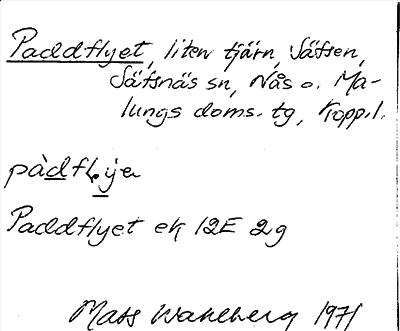 Paddflyet, liten tjärn, Säfsen,
Säfsnäs sn, Nås o. Ma-
lungs doms. tg, Kopp.l.
pàdflyje
Paddflyet ek 12E 2g
Mats Wahlberg 1971